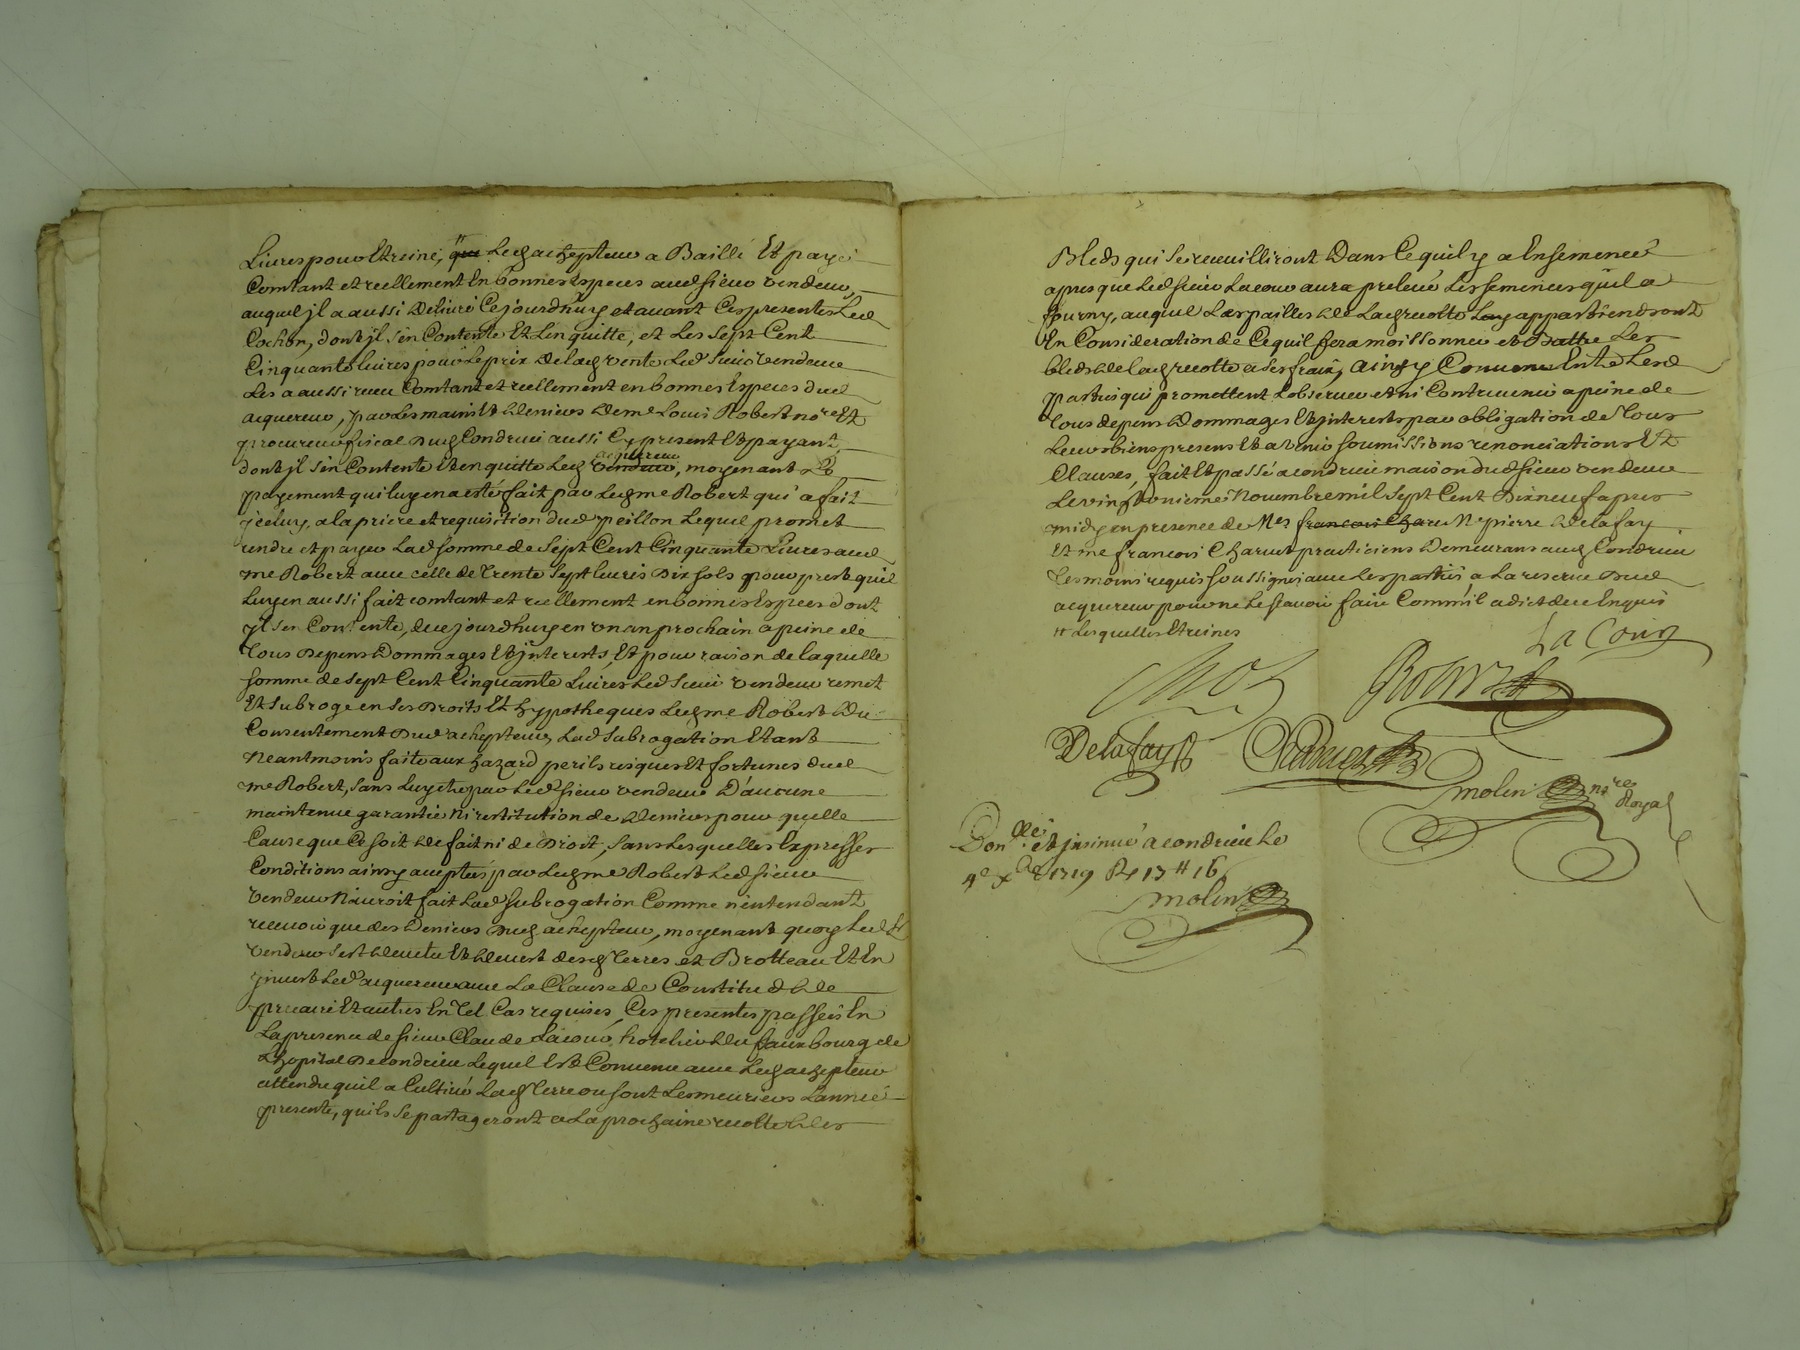 Livres pour Etreine, # que Ledachepteur a Baillé Et payé
Comtant et reellement En bonnes Especes aud sieur vendeur,
auquel jl a aussi Delivré Cejourdhuy et avant Cespresentes Led
Cochon, dont jl s'en Contente Et Len quitte, et Les sept Cent
Cinquante Livres pour Le prix de lad vente Led sieur vendeur
Les a aussi receu Comtant et reellement en bonnes Especes dud
acquereur, par Les mains Et deniers de me Louis Robert nore Et
procureur fiscal dud Condrieu aussi Cy present Et payant
dont jl s'en Contente Et en quitte Led vendeur acquereur, moyenant Le
payement qui luy en a esté fait par Led me Robert qui a fait
jceluy, a la priere et requisition dud peillon Lequel promet
rendre et payer Lad somme de Sept Cent Cinquante Livres aud
me Robert avec celle de Trente Sept Livres Dix sols pour prest quil
Luy en aussi fait comtant et reellement en bonnes Especes dont
jl sen Contente, de cejourdhuy en un an prochain a peine de
Tous depens Dommages Et jnterests, Et pour raison de laquelle
somme de Sept Cent Cinquante Livres Led sieur vendeur remet
Et subroge en ses Droits Et hypotheques Led me Robert du
Consentement dud achepteur, Lad subrogation Etant
Neantmoins faite aux hazard perils risques Et fortunes dud
me Robert, sans Luy etre par Led sieur vendeur D'aucune
maintenue garantie ni restitution de deniers pour quelle
Cause que Ce soit de fait ni de Droit, sans Lesquelles Expresses
Conditions ainsy aceptées par Led me Robert Led sieur
vendeur N'auroit fait Lad subrogation Comme n'entendant
recevoir que des deniers dud achepteur, moyenant quoy Led
vendeur s'est devetu Et devest desd Terres et Brotteau Et En
jnvest Led acquereur avec La Clause de Constitut de
precaire Et autres En Tel Cas requises, Ces presentes passées En
La presence de sieur Claude Lacour hotelier du fauxbourg de
Lhopital De Condrieu Lequel Est Convenu avec Led achepteur
attendu quil a Cultivé Lad Terre ou sont Les meuriers L'année
presente, quils Se partageront a La prochaine recolte Les
Bleds qui se recueilliront Dans Ce quil y a Ensemencé
apres que Led sieur Lacour aura prelevé Les semences quil a
fourny, auquel Les pailles de Lad recolte Luy appartiendront
En Consideration de Ce quil fera moissonner et Battre Les
bleds de Lad recolte a ses fraix, ainsy Convenu Entre Lesd
parties qui promettent L'observer et ni Contrevenir a peine de
Tous depens Dommages Et jnterests par obligation de Tous
Leurs biens presens Et avenir soumissions renonciations Et
Clauses, fait Et passé a condrieu maison dud sieur vendeur
Le vingt unieme Novembre mil Sept Cent Dixneuf apres
midy en presence de Mes francois Char Me pierre Delafay
Et me francois Charvet praticiens Demeurans aud Condrieu
Tesmoins requis soussignés avec Les parties, a La reserve dud
acquereur pour ne Le scavoir faire Comme il a dit de ce Enquis
# Lesquelles Etreines
La Cour
Robert
Delafay
Charvet
molin nore Royal
Con.llé et jnsinué a condrieu Le
4e xbre 1719 R 13 # 16
molin